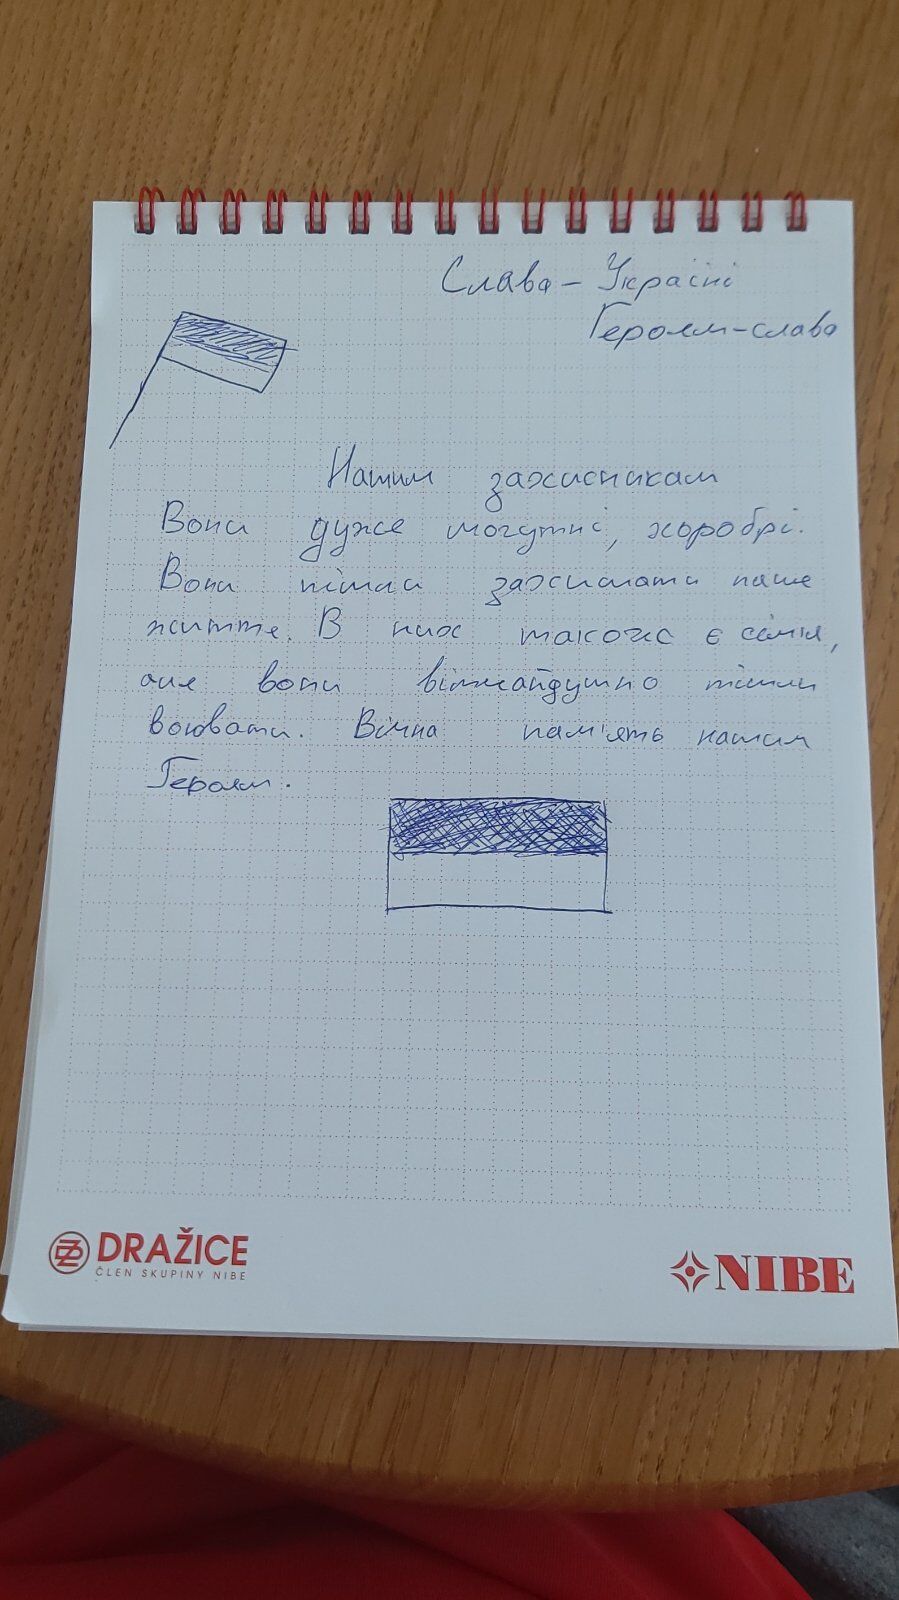 Слава - Україні
Героям-слава
Нашим захисникам
Вони дуже могутні, хоробрі.
Вони пішли захищати наше
життє. В них також є сімя,
але вони відчайдушно пішли
воювати. Вічна пам'ять нашим
Героям.
DRAŽICE
ČLEN SKUPINY NIBE
NIBE